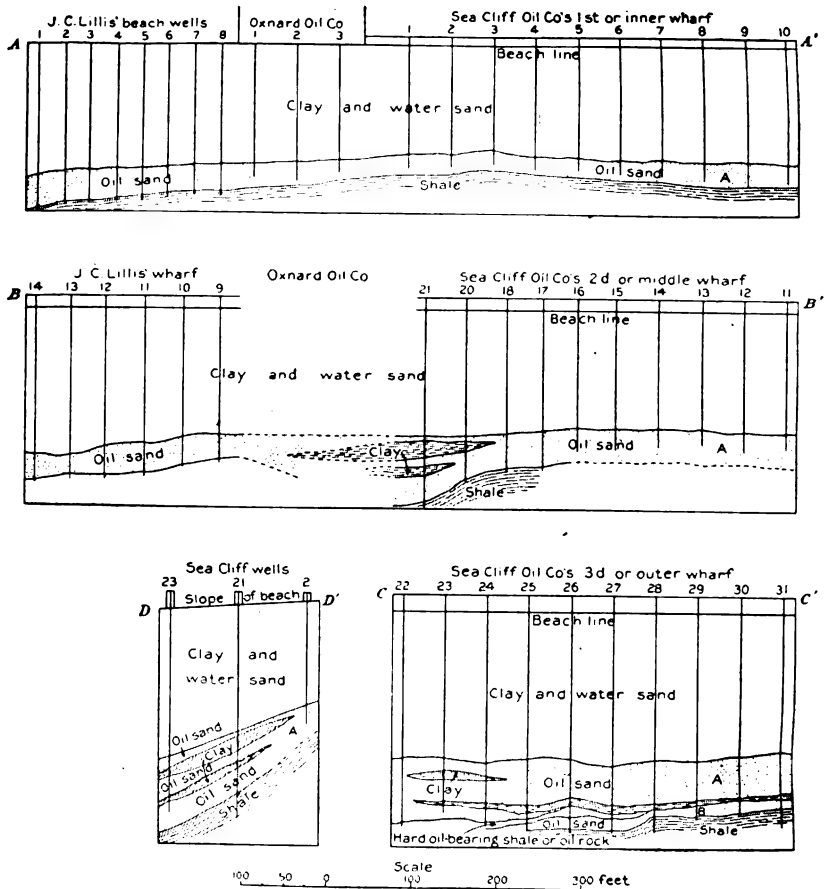 J. C. Lillis' beach wells
Oxnard Oil Co
Sea Cliff Oil Co's 1st or inner wharf
A 1 2 3 4 5 6 7 8 1 2 3 1 2 3 4 5 6 7 8 9 10 A'
Beach line
Clay and water sand
Oil sand
Shale
Oil sand
A
J. C. Lillis' wharf
Oxnard Oil Co
Sea Cliff Oil Co's 2d or middle wharf
B 14 13 12 11 10 9 21 20 18 17 16 15 14 13 12 11 B'
Beach line
Clay and water sand
Oil sand
Clay
Oil sand
A
Shale
Sea Cliff wells
23 21 2
D Slope of beach D'
Clay and
water sand
Oil sand
Clay
A
Oil sand
Oil sand
Shale
Sea Cliff Oil Co's 3d or outer wharf
C 22 23 24 25 26 27 28 29 30 31 C'
Beach line
Clay and water sand
Clay
Oil sand
A
B
Oil sand
Shale
Hard oil-bearing shale or oil rock
Scale
100 50 0 100 200 300 feet